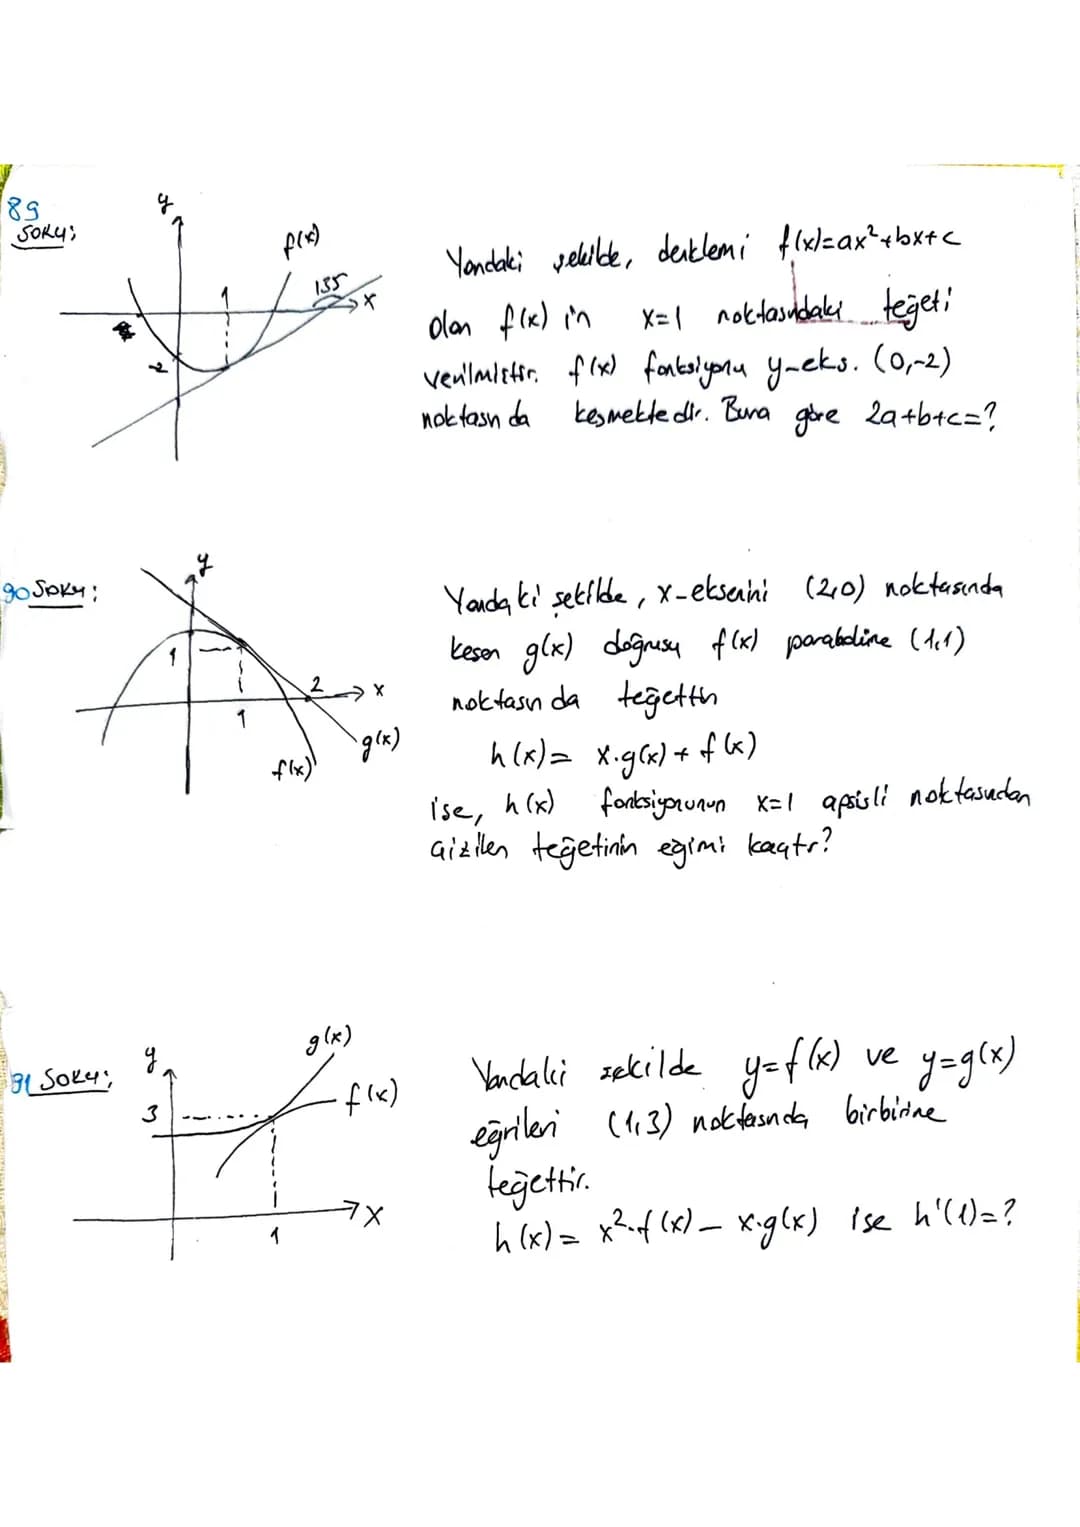 89
Soru:
y
f(x)
1
135
x
-2
Yandaki şekilde, denklemi f(x)=ax²+bx+c
olan f(x) in x=1 noktasındaki teğeti
verilmiştir. f(x) fonksiyonu y-eks. (0,-2)
noktasında kesmektedir. Buna göre 2a+b+c=?
90 Soru:
y
1
2
x
1
g(x)
f(x)
Yandaki şekilde, x-eksenini (2,0) noktasında
kesen g(x) doğrusu f(x) parabolüne (1,1)
noktasında teğettir
h(x)= x.g(x)+f(x)
ise, h(x) fonksiyonunun x=1 apsisli noktasından
çizilen teğetinin eğimi kaçtır?
91 Soru:
y
g(x)
f(x)
3
x
1
Yandaki şekilde y=f(x) ve y=g(x)
eğrileri (1,3) noktasında birbirine
teğettir.
h(x)= x².f(x)-x.g(x) ise h'(1)=?